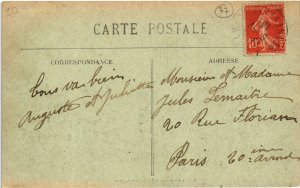 CARTE POSTALE
CORRESPONDANCE
ADRESSE
Tous va bien
Auguste et Juliette
Monsieur et Madame
Jules Lemaitre
20 Rue Florian
Paris 20 ième arrond
10